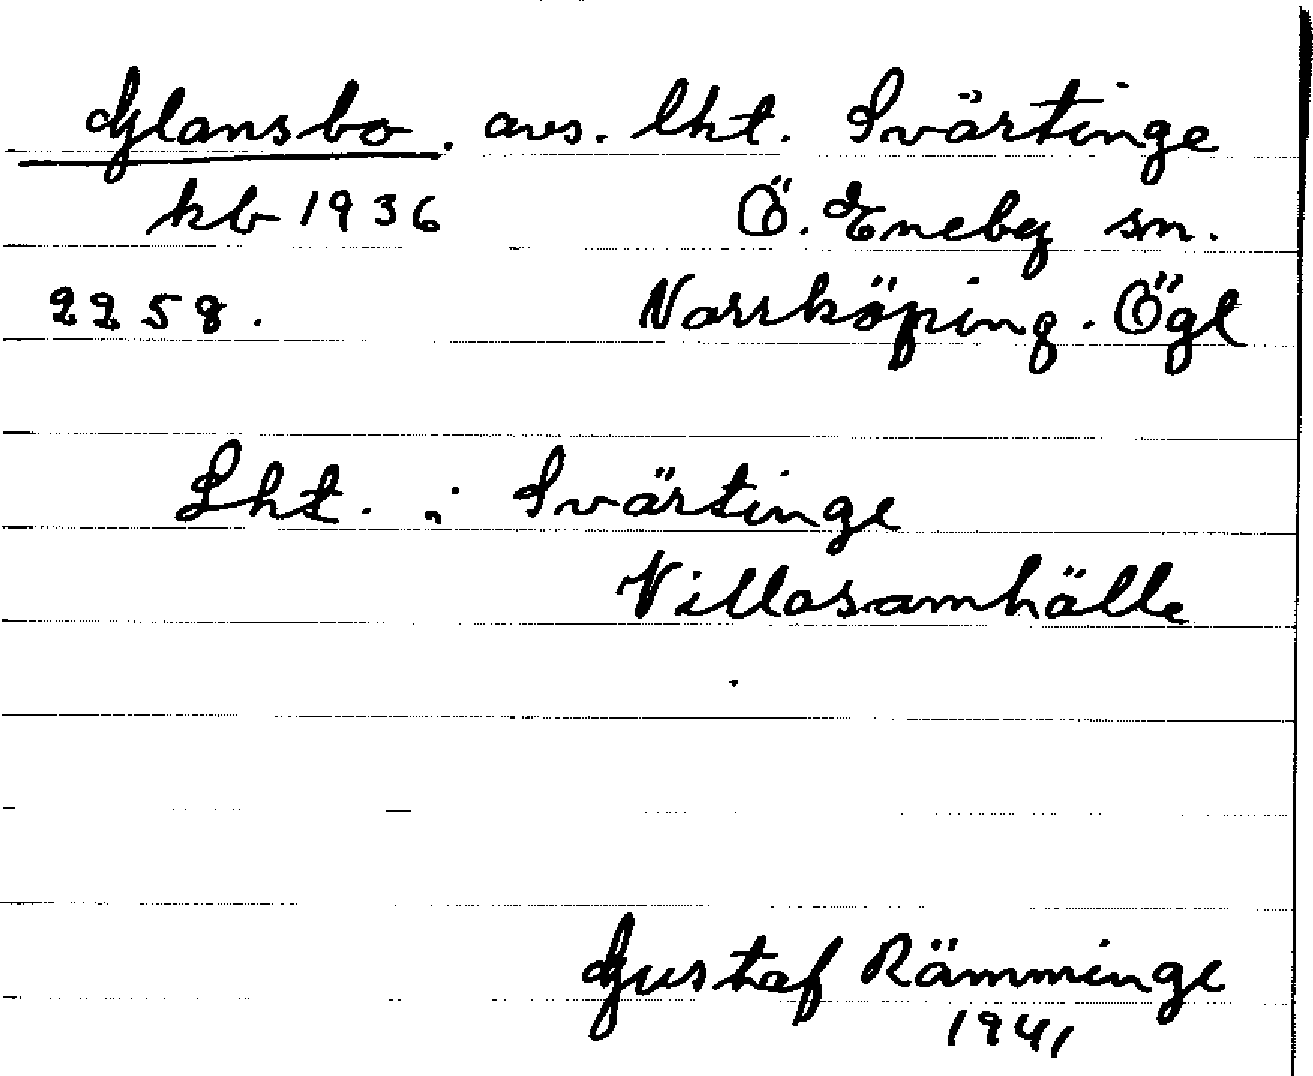 Glansbo. avs. lht. Svärtinge
kb 1936 Ö. Eneby sn.
2258. Norrköping. Ögl
Lht. i Svärtinge
Villasamhälle
Gustaf Rämminge
1941